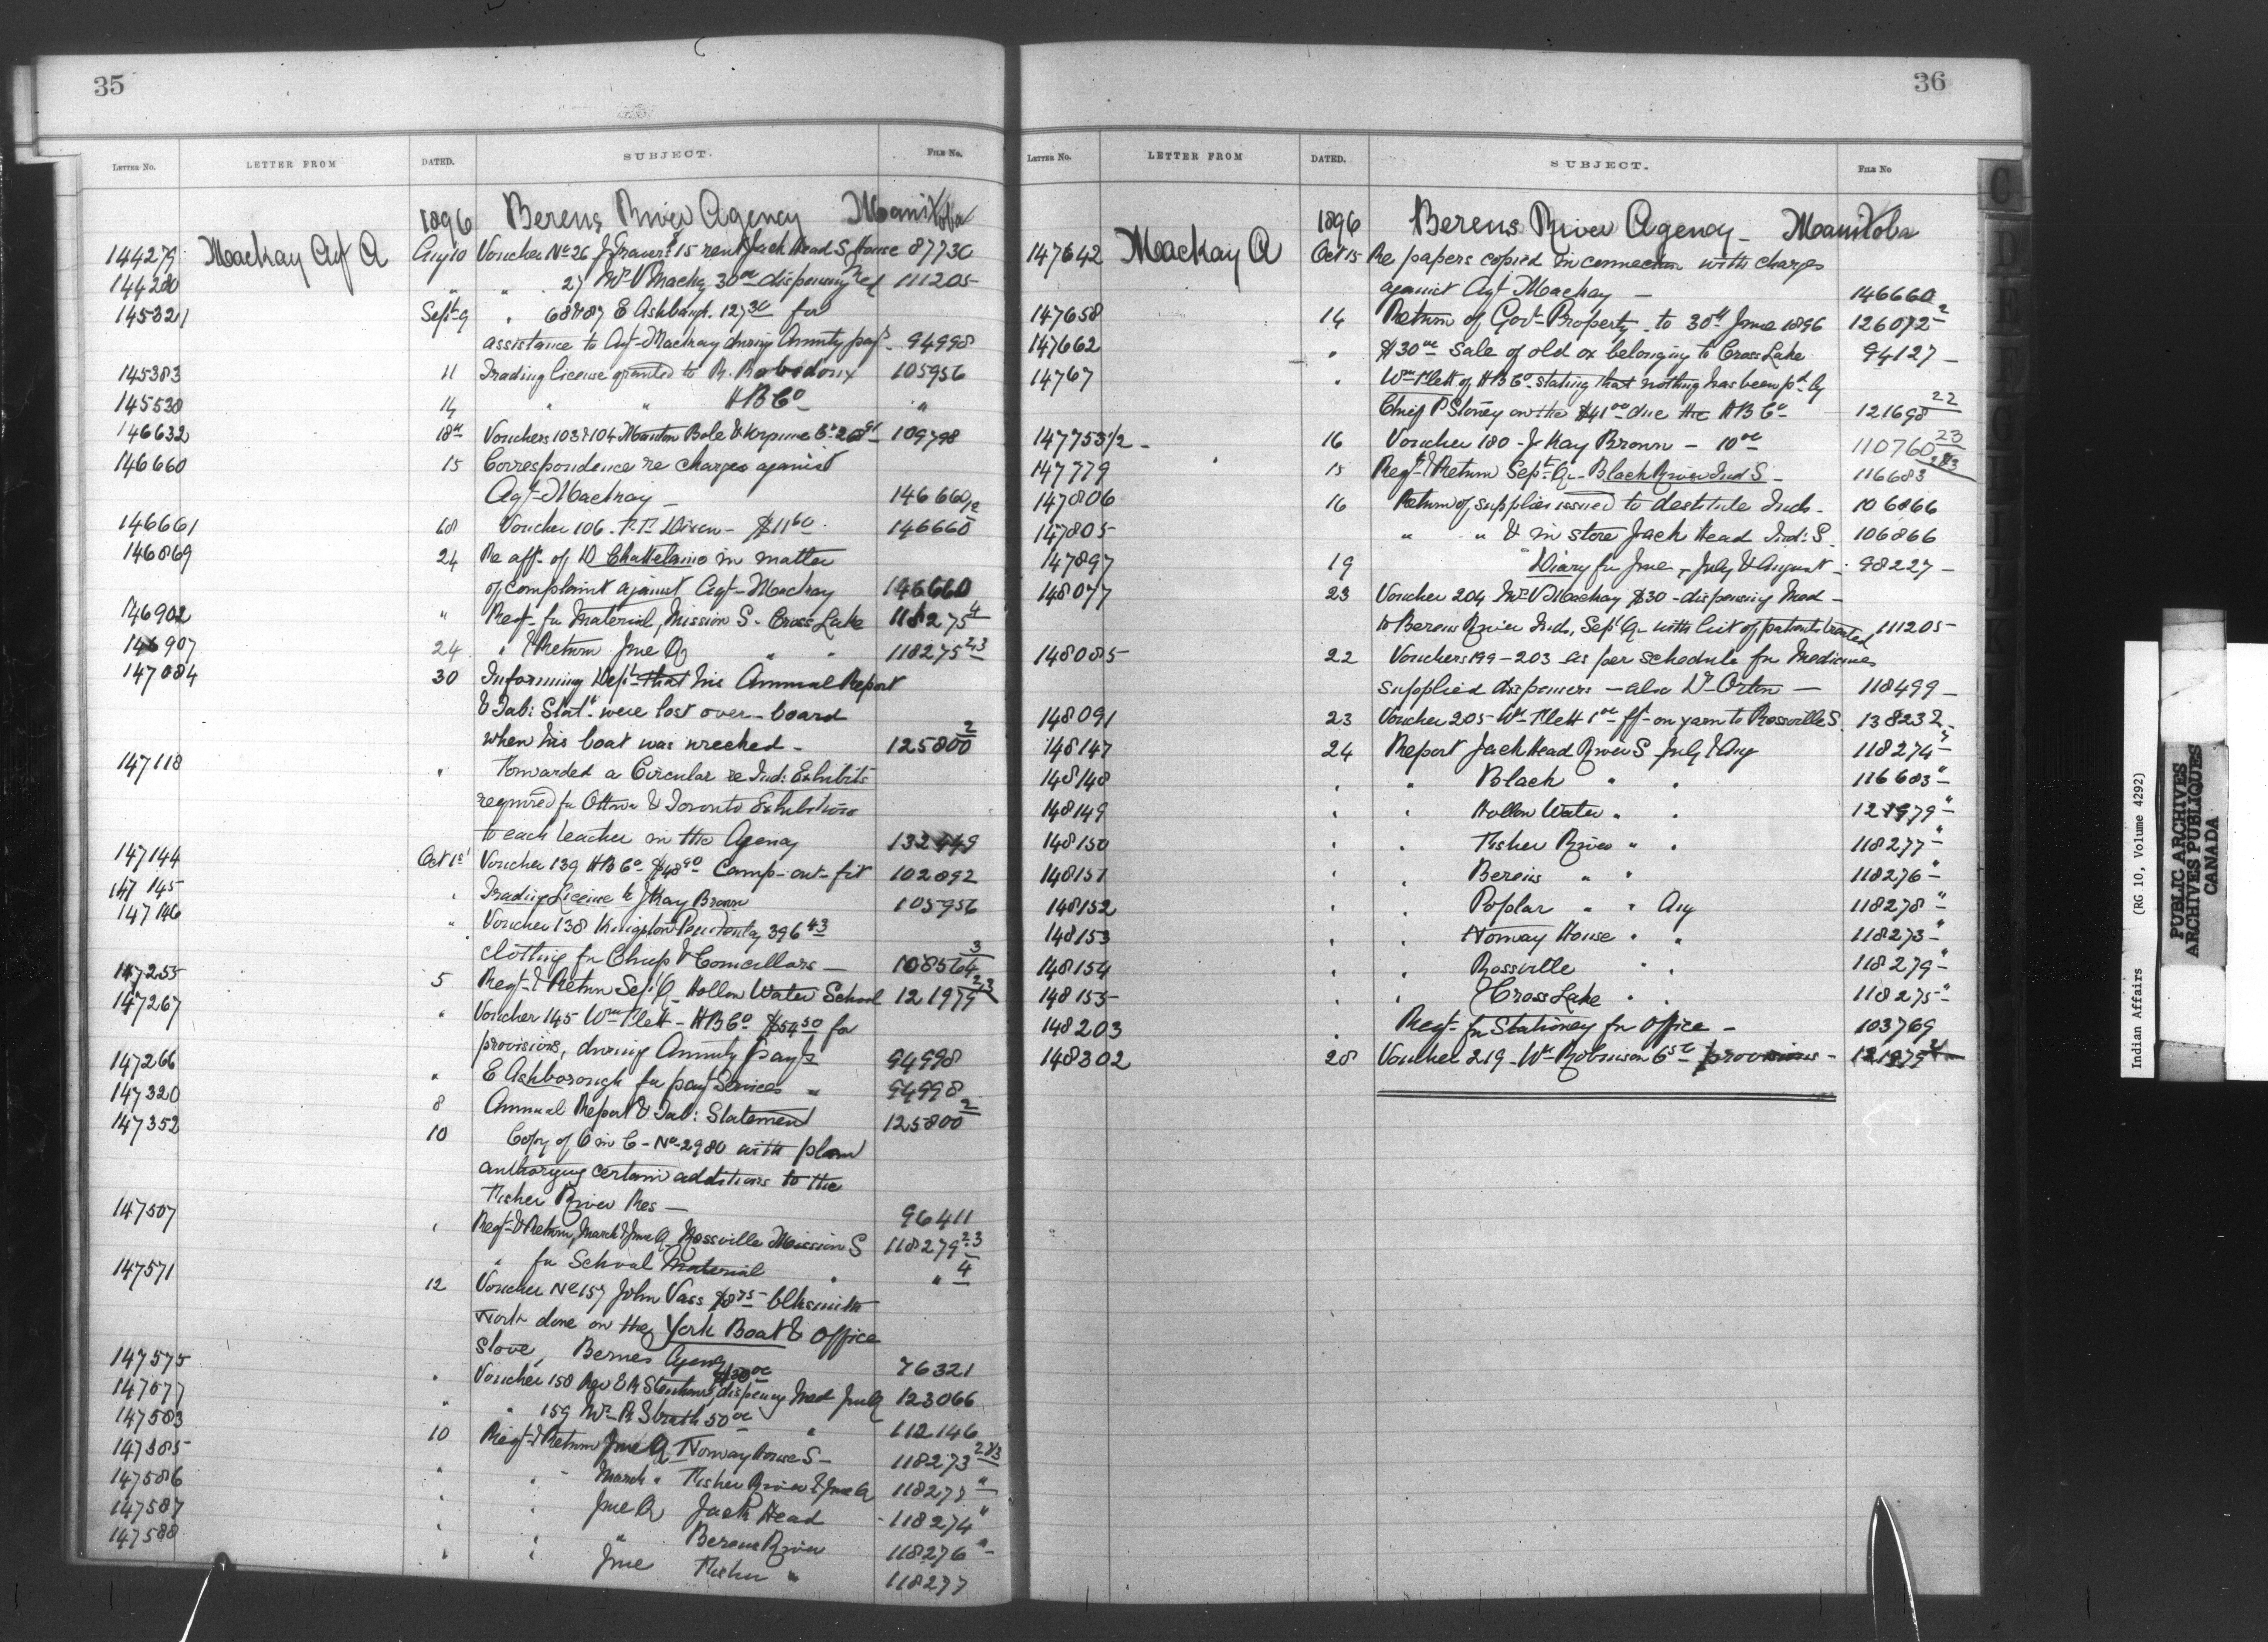 35
LETTER NO. LETTER FROM DATED. SUBJECT. FILE NO.
1896 Berens River Agency Manitoba
144279 Mackay Agt A Aug 10 Voucher No 26 J 15 rent Jack Head S. House 87730
144280 " " 27 Mrs V Macky 30 00 dispensing Med 111205
145321 Sept 9 " 68 & 87 E Ashbaugh. 127 30 for
assistance to Agt Mackay during Annuity payts 94998
145383 11 Trading license granted to R. Robedoux 105956
145538 14 " " H B Co "
146632 18th Vouchers 103 & 104 Bole & 109798
146660 15 Correspondence re charges against
Agt Mackay — 146660/2
146661 18 Voucher 106. Dixen - $11 60. 146660
146869 24 Re aff. of D Chattelaine in matter
of complaint against Agt Mackay 146660
146902 " Reqt. for Material, Mission S. Cross Lake 118275 4
146907 24 " & Return June Q " " 118275 2.3
147084 30 Informing Dept that his Annual Report
& Tab: Statt. were lost over-board
when his boat was wrecked - 125800 2
147118 " Forwarded a Circular re Ind: Exhibits
required for Ottawa & Toronto Exhibitions
to each teacher in the Agency 132449
147144 Oct 1st Voucher 139 H B Co $48 90 Camp-out-fit 102892
147145 " Trading License to J Kay Brown 105956
147146 " Voucher 138 Kingston Penitentiary 396 43
clothing for Chiefs & Councillors — 108564 3
147255 5 Reqt. & Return Sept Q. Hollow Water School 121979 2,3
147267 " Voucher 145 Wm Flett - H B Co $54 50 for
provisions, during Annuity payts 94998
147266 " E Ashborough for payt Services " 94998
147320 8 Annual Report & Tab: Statement 125800 2
147352 10 Copy of O in C - No 2980 with plan
authorizing certain additions to the
Fisher River Res — 96411
147507 " Reqt. & Return, March & June Q. Rossville Mission S 118279 2.3
" for School Material " " 4
147571 12 Voucher No 157 John Vass $8 75 blksmith
work done on the York Boat & Office
stove, Bernes Agency 76321
147575 " Voucher 158 Rev E R $30 00 dispensy Med June Q 123066
147577 " " 159 Mr R Strath 50 00 " 112146
147583 10 Reqt. & Return June Q. Norway House S - 118273 2&3
147585 " " March " Fisher River & June Q 118277 "
147586 " " June Q Jack Head 118274 "
147587 " " " Berens River 118276 "
147588 " " June Fisher " 118277
36
LETTER NO. LETTER FROM DATED. SUBJECT. FILE NO
1896 Berens River Agency - Manitoba
147642 Mackay A Oct 15 Re papers copied in connection with charges
against Agt Mackay — 146660
147658 14 Return of Govt Property to 30th June 1896 126072 2
147662 " $30 00 Sale of old ox belonging to Cross Lake 94127 —
14767 " Wm Flett of H B Co. stating that nothing has been pd by
Chief P Stoney on the $41 00 due the H B Co 121698 22
147753 1/2 - 16 Voucher 180 - J Kay Brown - 10 00 110760 23
147779 15 Reqt. & Return Sept. Q. - Black River Ind S - 116683 2&3
147806 16 Return of supplies issued to destitute Inds - 106866
147805 " " & in store Jack Head Ind: S. 106866
147897 19 Diary for June, July & August - 98227 —
148077 23 Voucher 204 Mrs V Mackay $30 - dispensing Med -
to Berens River Inds, Sept Q. with list of patients treated 111205
148085 22 Vouchers 199 - 203 as per schedule for Medicines
supplied dispensers — also Dr Orton — 118499 —
148091 23 Voucher 205 - Wm Flett 1 00 frt on yarn to Rossville S. 138232
148147 24 Report Jack Head River S July & Aug 118274 "
148148 " " Black " " 116683 "
148149 " " Hollow Water " " 121979 "
148150 " " Fisher River " " 118277 "
148151 " " Berens " " 118276 "
148152 " " Poplar " " Aug 118278 "
148153 " " Norway House " " 118273 "
148154 " " Rossville " " 118279 "
148155 " " Cross Lake " " 118275 "
148203 " Reqt. for Stationery for Office - 103769
148302 28 Voucher 219 - Wm Robinson provisions - 121979
C
D
E
Indian Affairs (RG 10, Volume 4292)
PUBLIC ARCHIVES
ARCHIVES PUBLIQUES
CANADA